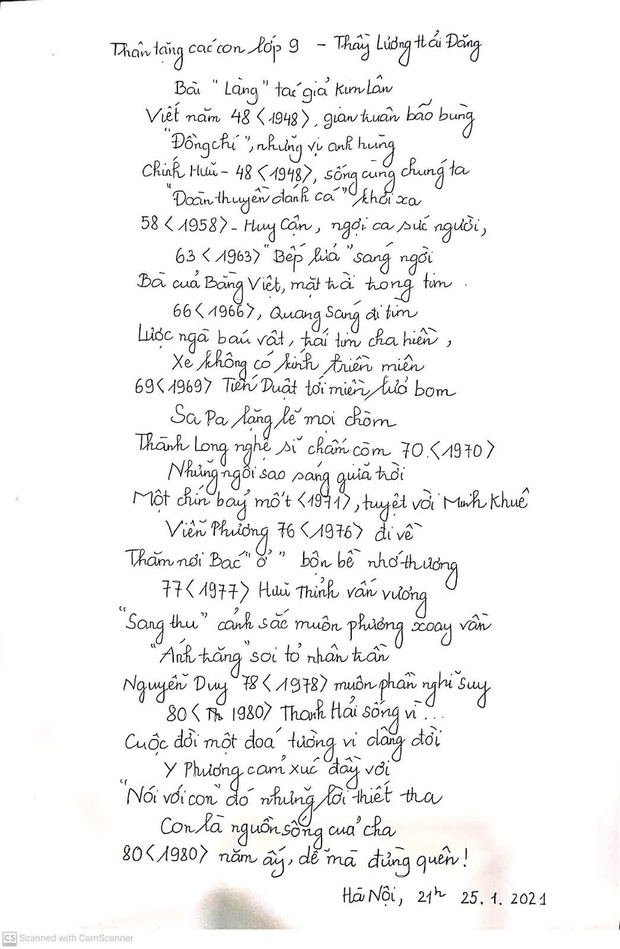 Thân tặng các con lớp 9 - Thầy Lương Hải Đăng
Bài "Làng" tác giả Kim Lân
Viết năm 48 <1948>, gian truân bão bùng
"Đồng chí", nhưng vị anh hùng
Chính Hữu - 48 <1948>, sống cùng chúng ta
"Đoàn thuyền đánh cá" khơi xa
58 <1958> - Huy Cận, ngợi ca sức người,
63 <1963> "Bếp lửa" sáng ngời
Bà của Bằng Việt, mặt trời trong tim.
66 <1966>, Quang Sáng đi tìm
Lược ngà báu vật, trái tim cha hiền,
Xe không có kính triền miên
69 <1969> Tiến Duật tới miền lửa bom
Sa Pa lặng lẽ mọi chòm
Thành Long nghệ sĩ chấm còm 70. <1970>
Những ngôi sao sáng giữa trời
Một chín bảy mốt <1971>, tuyệt vời Minh Khuê
Viễn Phương 76 <1976> đi về
Thăm nơi Bác "ở" bộn bề nhớ thương
77 <1977> Hữu Thỉnh vấn vương
"Sang thu" cảnh sắc muôn phương xoay vần
"Ánh trăng" soi tỏ nhân trần
Nguyễn Duy 78 <1978> muôn phần nghĩ suy
80 < 1980> Thanh Hải sống vì...
Cuộc đời một đoá tường vi dâng đời
Y Phương cảm xúc đầy vơi
"Nói với con" đó những lời thiết tha
Con là nguồn sống của cha
80 <1980> năm ấy, dễ mà đừng quên!
Hà Nội, 21h 25.1.2021
CS Scanned with CamScanner